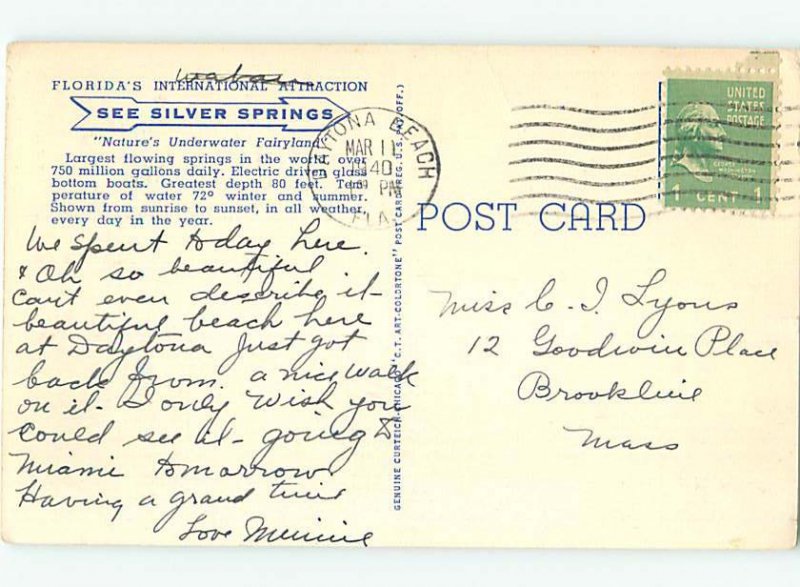 FLORIDA'S INTERNATIONAL ATTRACTION
SEE SILVER SPRINGS
"Nature's Underwater Fairyland"
Largest flowing springs in the world, over
750 million gallons daily. Electric driven glass
bottom boats. Greatest depth 80 feet. Tem-
perature of water 72° winter and summer.
Shown from sunrise to sunset, in all weather,
every day in the year.
We spent today here.
& Oh so beautiful
can't even describe it-
beautiful beach here
at Daytona Just got
back from. a nice walk
on it- I only wish you
could see it- going to
Miami tomorrow
Having a grand time
Love Minnie
GENUINE CURTEICH-CHICAGO "C.T. ART-COLORTONE" POST CARD (REG. U.S. PAT. OFF.)
DAYTONA BEACH
MAR 11
1940
PM
FLA.
UNITED
STATES
POSTAGE
GEORGE
WASHINGTON
1 CENT 1
POST CARD
Miss C. I. Lyons
12 Goodwin Place
Brookline
Mass